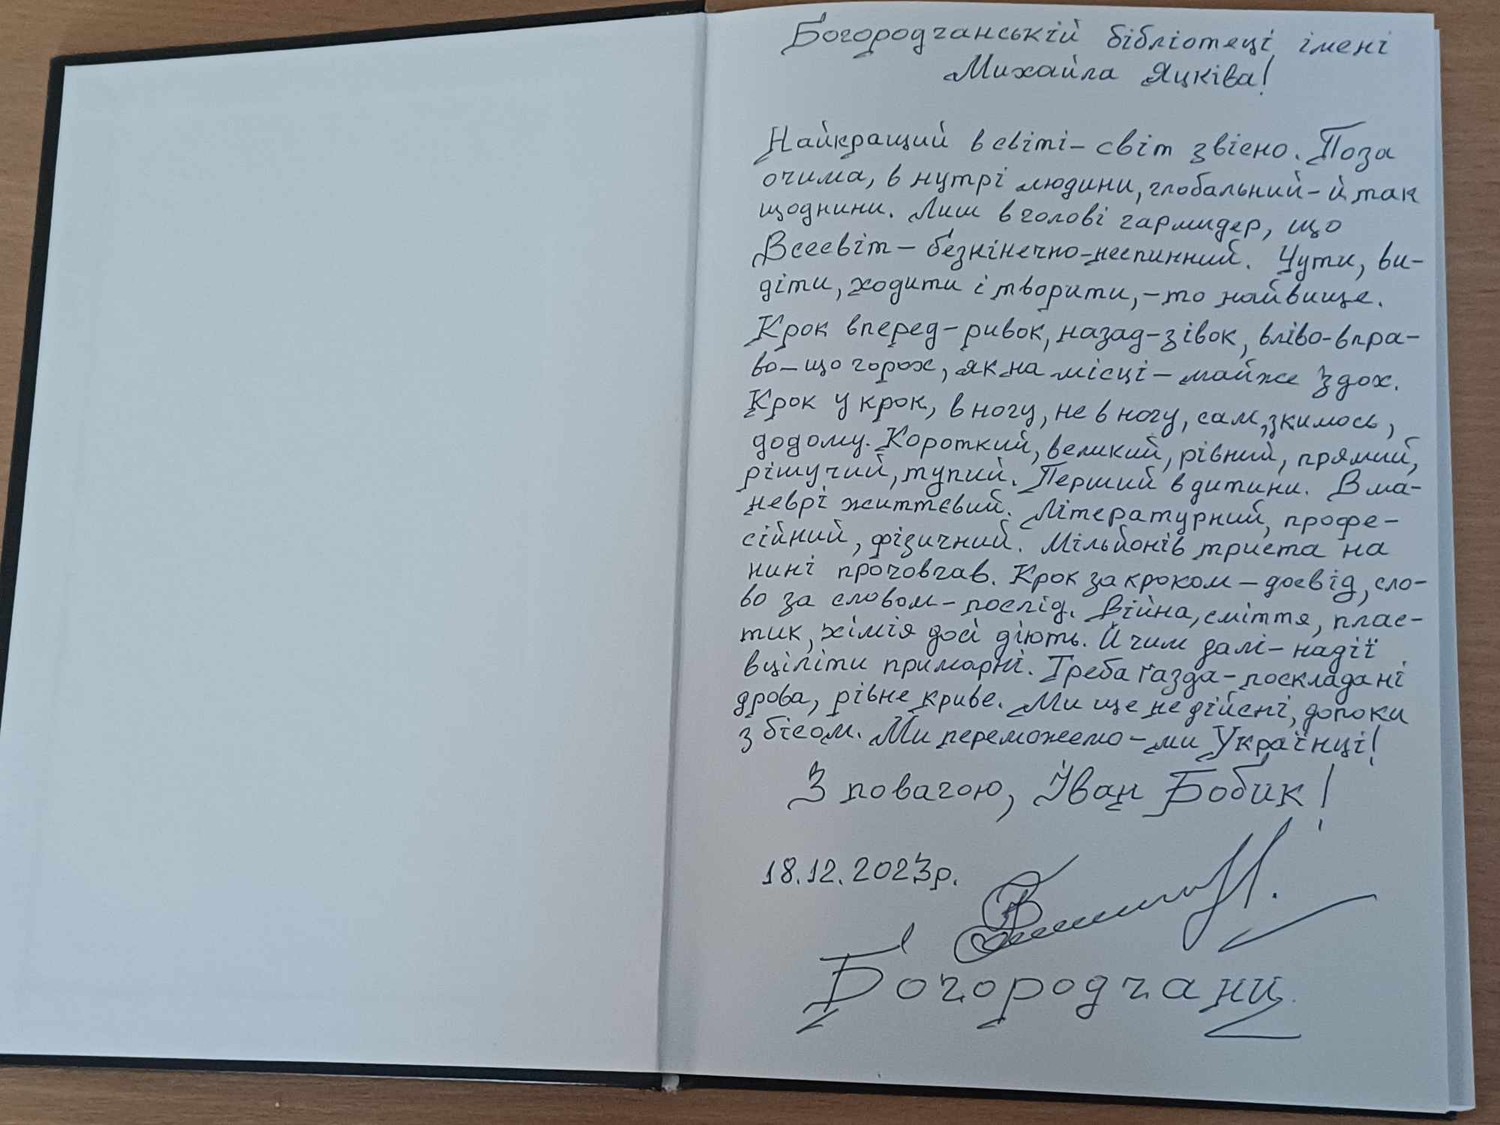 Богородчанській бібліотеці імені
Михайла Яцківа!
Найкращий в світі – світ звісно. Поза
очима, в нутрі людини, глобальний – й так
щоднини. Лиш в голові гармидер, що
Всесвіт – безкінечно-неспинний. Чути, ви-
діти, ходити і творити, – то найвище.
Крок вперед – ривок, назад – зівок, вліво-впра-
во – що горох, як на місці – майже здох.
Крок у крок, в ногу, не в ногу, сам, зкимось,
додому. Короткий, великий, рівний, прямий,
рішучий, тупий. Перший в дитини. В ма-
неврі життєвий. Літературний, профе-
сійний, фізичний. Мільйонів триста на
нині прочовгав. Крок за кроком – досвід, сло-
во за словом – послід. Війна, сміття, плас-
тик, хімія досі діють. Й чим далі – надії
вціліти примарні. Треба ґазда – поскладані
дрова, рівне криве. Ми ще не дійсні, допоки
з бісом. Ми переможемо – ми Українці!
З повагою, Іван Бобик!
18.12.2023р.
Богородчани